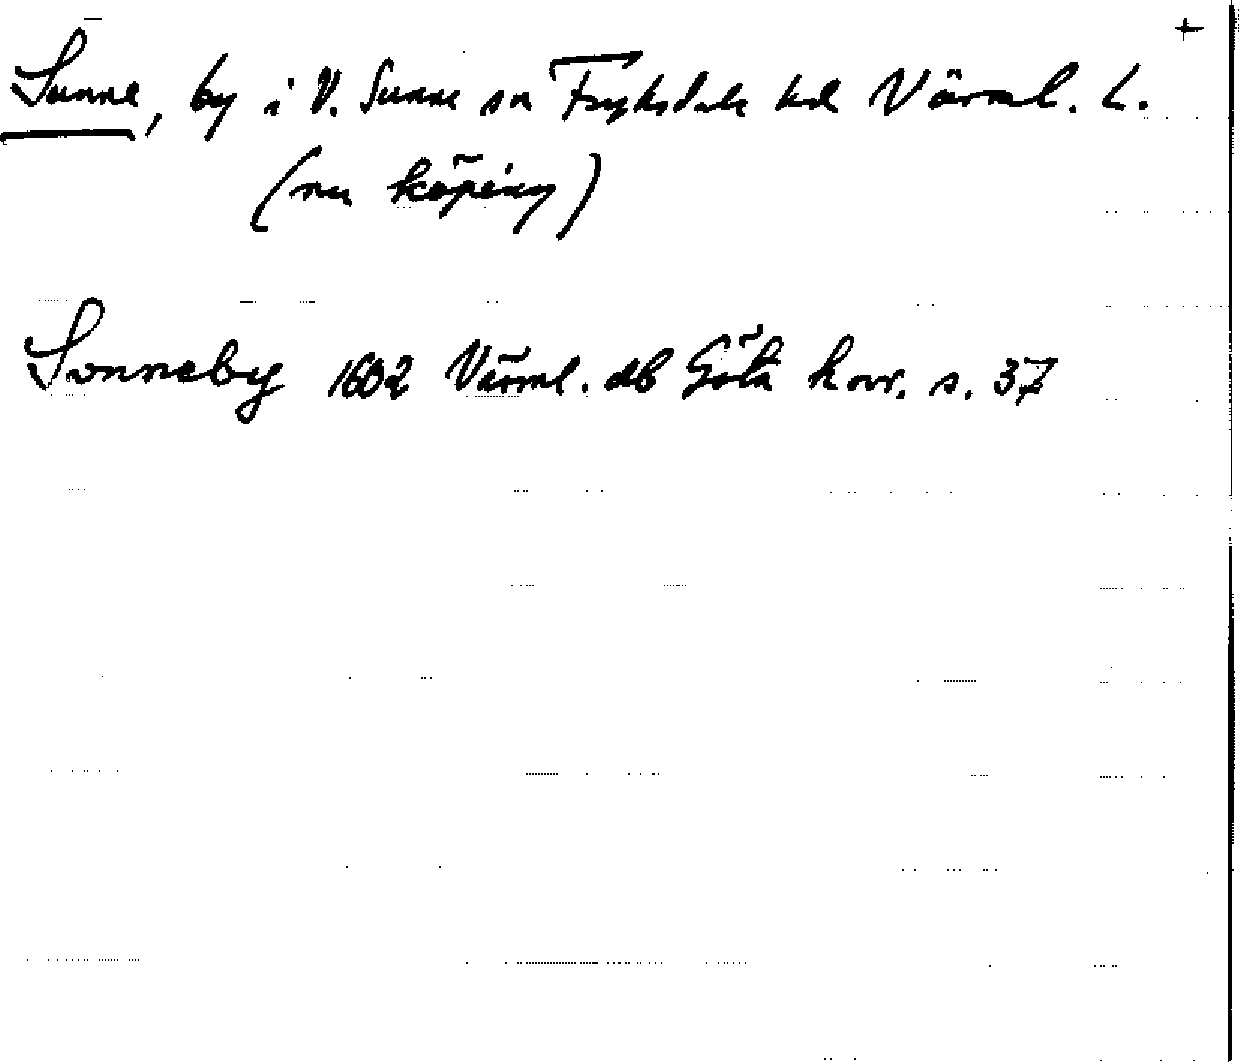 +
Sunne, by i V. Sunne sn Fryksdals hd Värml. L.
(nu köping)
Sonneby 1602 Värml. db Göta hovr. s. 37